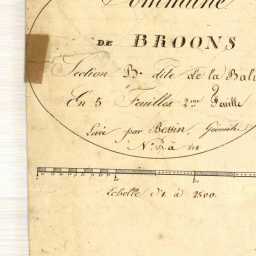 Commune
DE BROONS
Section B. dite de la Bal
En 5 Feuilles 2me Feuille
Levé par Bessin, Géomètre
Echelle d'1 à 2500.